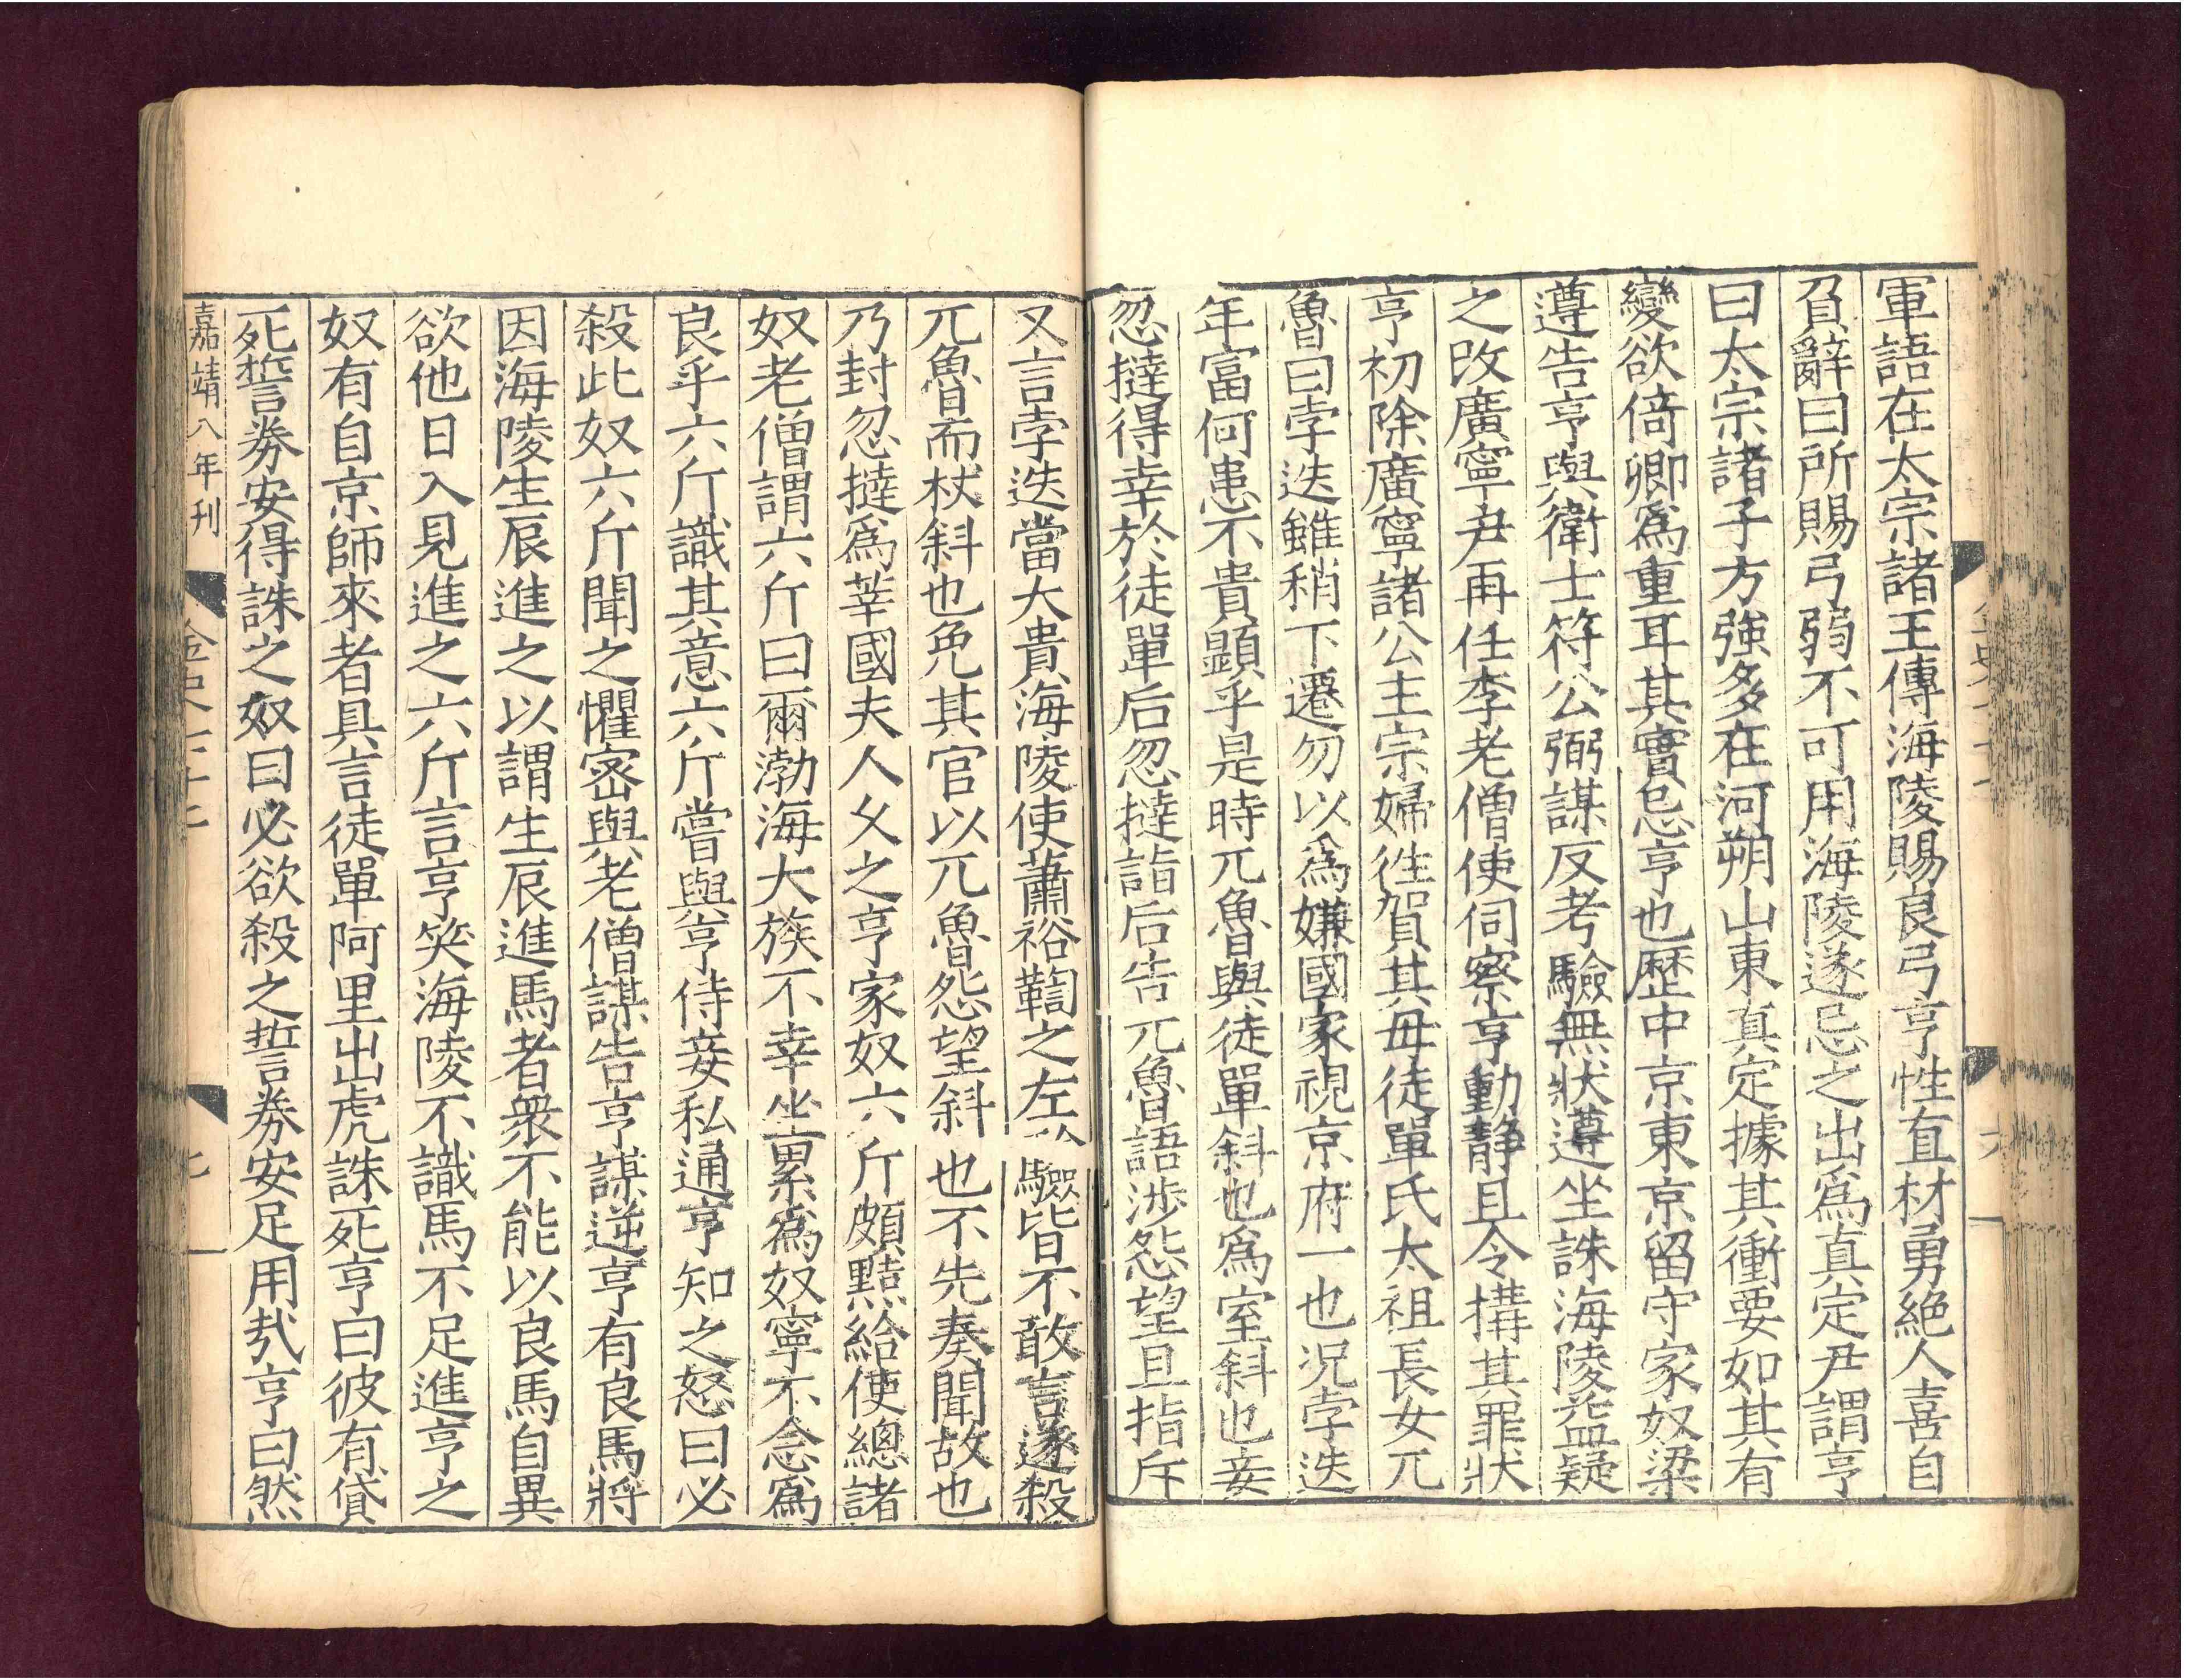 軍語在太宗諸王傳海陵賜良弓亨性直材勇絶人喜自
負辭曰所賜弓弱不可用海陵遂忌之出爲真定尹謂亨
曰太宗諸子方強多在河朔山東真定據其衝要如其有
變欲倚卿爲重耳其實忌亨也歷中京東京留守家奴梁
遵告亨與衛士符公弼謀反考驗無狀遵坐誅海陵益疑
之改廣寧尹再任李老僧使伺察亨動靜且令構其罪狀
亨初除廣寧諸公主宗婦往賀其母徒單氏太祖長女兀
魯曰孛迭雖稍下遷勿以爲嫌國家視京府一也况孛迭
年富何患不貴顯乎是時兀魯與徒單斜也爲室斜也妾
忽撻得幸於徒單后忽撻詣后告兀魯語涉怨望且指斥
又言孛迭當大貴海陵使蕭裕鞫之左驗皆不敢言遂殺
兀魯而杖斜也免其官以兀魯怨望斜也不先奏聞故也
乃封忽撻爲莘國夫人乆之亨家奴六斤頗黠給使總諸
奴老僧謂六斤曰爾渤海大族不幸坐累爲奴寧不念爲
良乎六斤識其意六斤嘗與亨侍妾私通亨知之怒曰必
殺此奴六斤聞之懼密與老僧謀告亨謀逆亨有良馬將
因海陵生辰進之以謂生辰進馬者衆不能以良馬自異
欲他日入見進之六斤言亨笑海陵不識馬不足進亨之
奴有自京師來者具言徒單阿里出虎誅死亨曰彼有貸
死誓券安得誅之奴曰必欲殺之誓券安足用㢤亨曰然
嘉靖八年刊